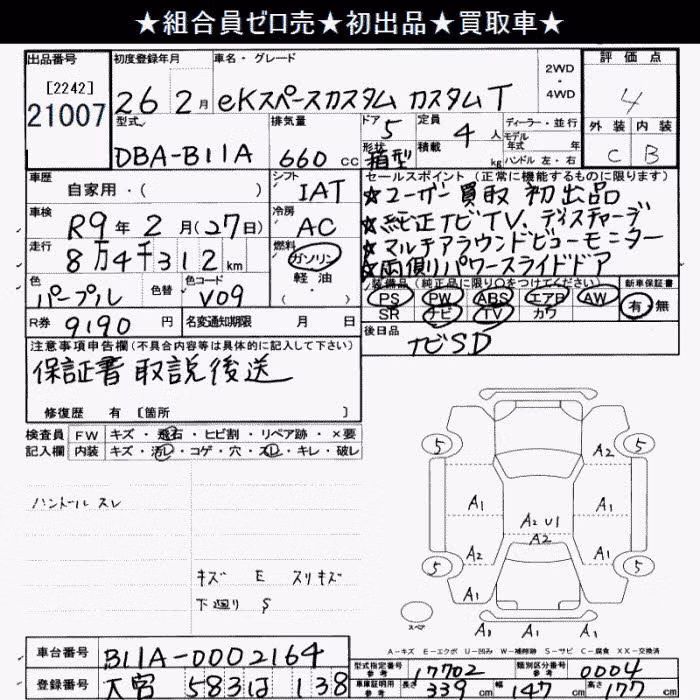 ★組合員ゼロ売★初出品★買取車★
出品番号
[2242]
21007
初度登録年月
26年 2月
車名・グレード
eKスペースカスタム カスタムT
2WD
・
4WD
評価点
4
外装 内装
C B
型式
DBA-B11A
排気量
660 cc
ドア 5
形状 箱型
定員
4 人
積載
kg
ディーラー・並行
モデル
年式 年
ハンドル 左・右
車歴
自家用・( )
シフト
IAT
セールスポイント (正常に機能するものに限ります)
★ユーザー買取 初出品
★純正ナビTV、ディスチャージ
★マルチアラウンドビューモニター
★両側パワースライドドア
車検
R9年2月(27日)
冷房
AC
走行
8万4千312km
燃料
ガソリン
軽油
( )
色
パープル
色替
色コード
V09
装備品 (純正品に限り○をつけてください)
PS PW ABS エアB AW
SR ナビ TV カワ
新車保証書
有・無
R券 9190 円
名変通知期限 月 日
後日品
ナビSD
注意事項申告欄(不具合内容等は具体的に記入して下さい)
保証書 取説後送
修復歴 有 [箇所 ]
検査員 FW キズ・飛石・ヒビ割・リペア跡・×要
記入欄 内装 キズ・汚レ・コゲ・穴・スレ・キレ・破レ
ハンドル スレ
キズ E スリキズ
下廻り S
5 5
A2
A1 A1
A2 U1
A2
A2 A1
5 5
A1 A1
A1 A1 A1
スペア
A-キズ E-エクボ U-凹み W-補修跡 S-サビ C-腐食 XX-交換済
車台番号
B11A-0002164
登録番号
大宮 583は 138
型式指定番号
参考
17702
類別区分番号
参考
0004
車庫証明用
参考
長さ 339 cm 幅 147 cm 高さ 177 cm